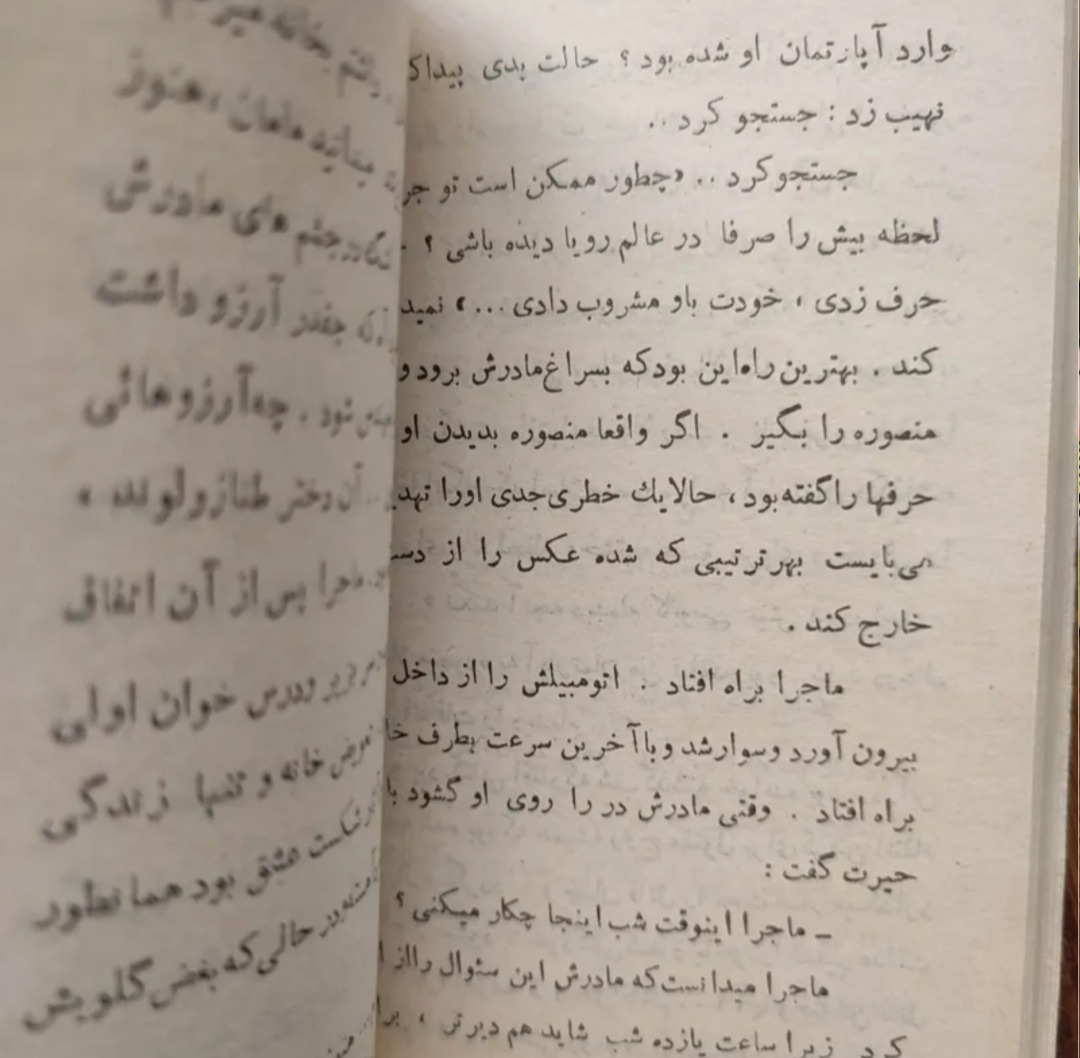 وارد آپارتمان او شده بود ؟ حالت بدی پیدا ک
نهیب زد : جستجو کرد ..
جستجو کرد .. «چطور ممکن است تو جر
لحظه بیش را صرفا در عالم رویا دیده باشی ؟ .
حرف زدی ، خودت باو مشروب دادی ...» نمید
کند . بهترین راه این بود که بسراغ مادرش برود و
منصوره را بگیز . اگر واقعا منصوره بدیدن او
حرفها را گفته بود ، حالا یك خطری جدی اورا تهد
می بایست بهر ترتیبی که شده عکس را از دس
خارج کند .
ماجرا براه افتاد . اتومبیلش را از داخل
بیرون آورد و سوار شد و با آخرین سرعت بطرف خا
براه افتاد . وقتی مادرش در را روی او گشود با
حیرت گفت :
ـ ماجرا اینوقت شب اینجا چکار میکنی ؟
ماجرا میدانست که مادرش این سئوال را از ا
کرد زیرا ساعت یازده شب شاید هم دیرتر ، برا
بخانه
هنوز
چشم های مادرش
چقدر آرزو داشت
شود . چه آرزوهائی
آن دختر طناز و لوند ،
ماجرا پس از آن اتفاق
و درس خوان اولی
خانه و تنها زندگی
شکست عشق بود همانطور
در حالی که بغض گلویش